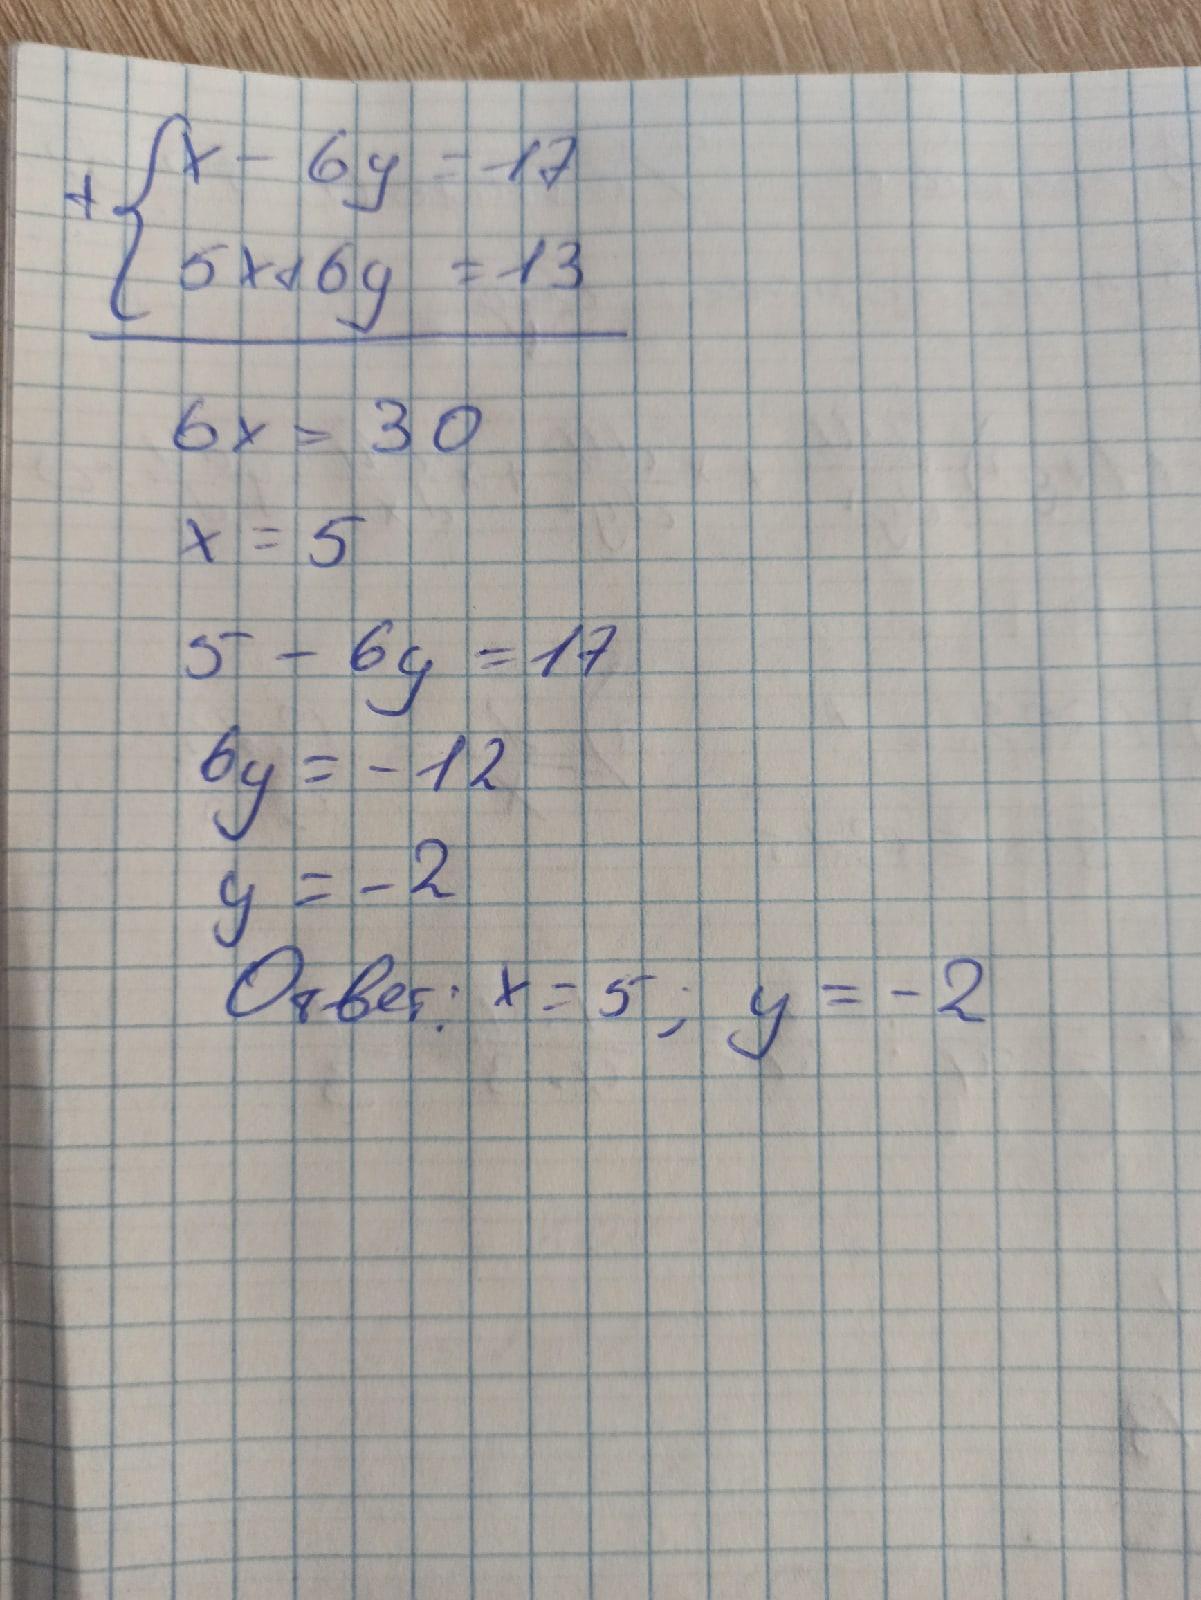 + { x - 6y = 17
5x+6y = 13
6x = 30
x = 5
5 - 6y = 17
6y = -12
y = -2
Ответ: x = 5; y = -2